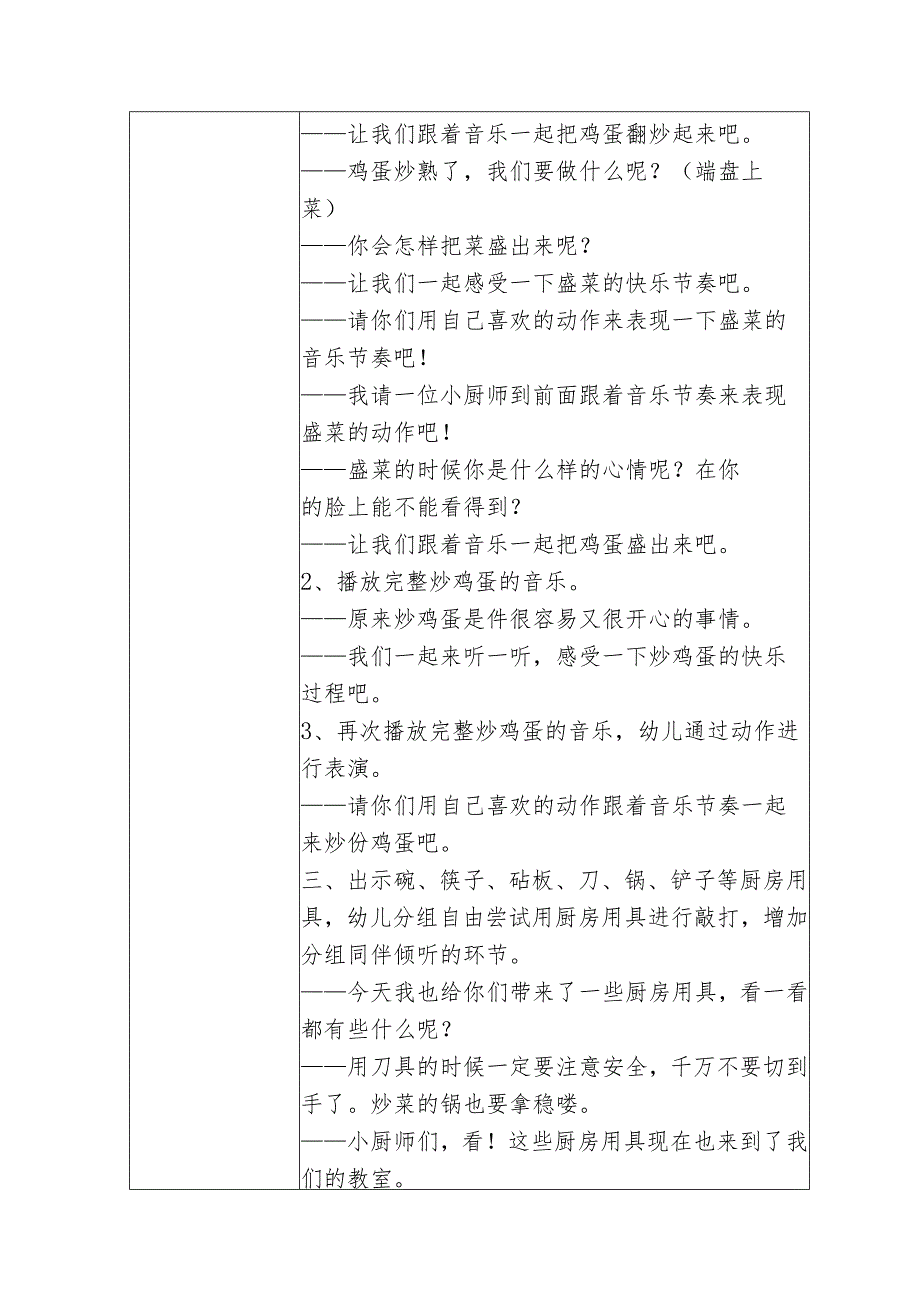 ——让我们跟着音乐一起把鸡蛋翻炒起来吧。
——鸡蛋炒熟了，我们要做什么呢？（端盘上
菜）
——你会怎样把菜盛出来呢？
——让我们一起感受一下盛菜的快乐节奏吧。
——请你们用自己喜欢的动作来表现一下盛菜的
音乐节奏吧！
——我请一位小厨师到前面跟着音乐节奏来表现
盛菜的动作吧！
——盛菜的时候你是什么样的心情呢？在你
的脸上能不能看得到？
——让我们跟着音乐一起把鸡蛋盛出来吧。
2、播放完整炒鸡蛋的音乐。
——原来炒鸡蛋是件很容易又很开心的事情。
——我们一起来听一听，感受一下炒鸡蛋的快乐
过程吧。
3、再次播放完整炒鸡蛋的音乐，幼儿通过动作进
行表演。
——请你们用自己喜欢的动作跟着音乐节奏一起
来炒份鸡蛋吧。
三、出示碗、筷子、砧板、刀、锅、铲子等厨房用
具，幼儿分组自由尝试用厨房用具进行敲打，增加
分组同伴倾听的环节。
——今天我也给你们带来了一些厨房用具，看一看
都有些什么呢？
——用刀具的时候一定要注意安全，千万不要切到
手了。炒菜的锅也要拿稳喽。
——小厨师们，看！这些厨房用具现在也来到了我
们的教室。